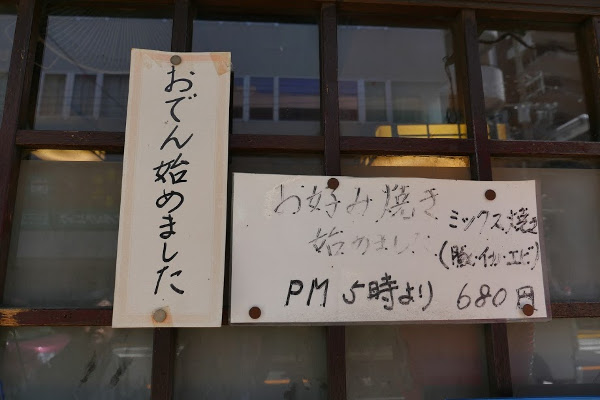 おでん始めました
お好み焼き
始めました
ミックス焼き
(豚・イカ・エビ)
PM 5時より 680円